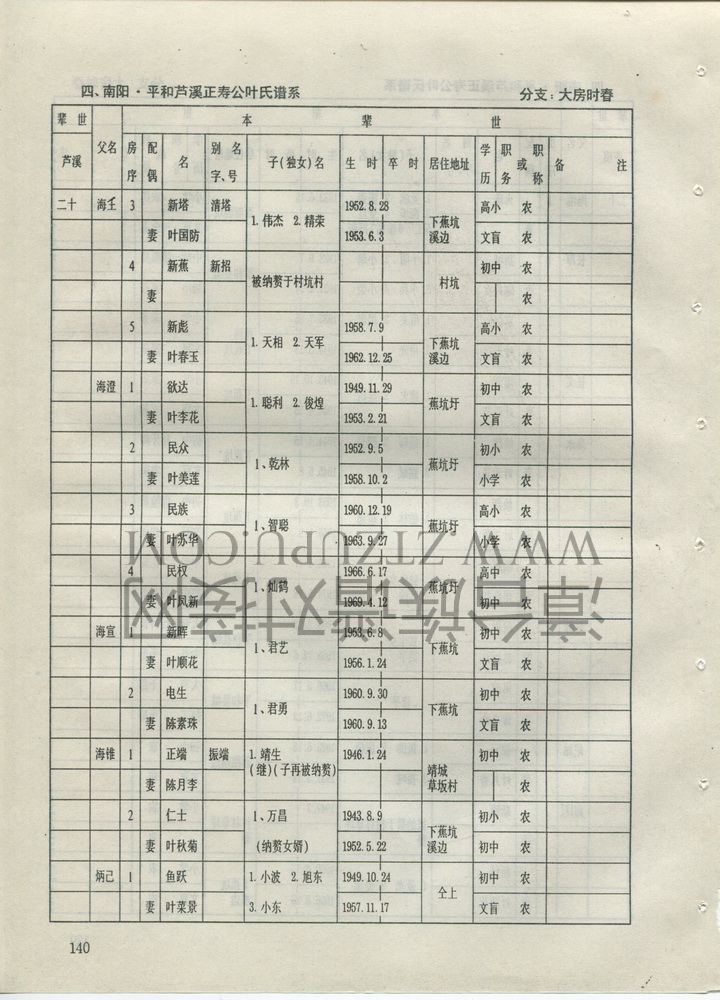 四、南阳·平和芦溪正寿公叶氏谱系 分支：大房时春
辈世 本 辈 世
芦溪 父名 房序 配偶 名 别名字、号 子(独女)名 生 时 卒 时 居住地址 学历 职务或职称 备 注
二十 海壬 3 新塔 清塔 1. 伟杰 2. 精荣 1952.8.28 下蕉坑溪边 高小 农
妻 叶国防 1953.6.3 文盲 农
4 新蕉 新招 被纳赘于村坑村 村坑 初中 农
妻 农
5 新彪 1. 天相 2. 天军 1958.7.9 下蕉坑溪边 高小 农
妻 叶春玉 1962.12.25 文盲 农
海澄 1 欲达 1. 聪利 2. 俊煌 1949.11.29 蕉坑圩 初中 农
妻 叶李花 1953.2.21 文盲 农
2 民众 1、乾林 1952.9.5 蕉坑圩 初小 农
妻 叶美莲 1958.10.2 小学 农
3 民族 1、智聪 1960.12.19 蕉坑圩 高小 农
妻 叶苏华 1963.9.27 小学 农
4 民权 1、灿鹤 1966.6.17 蕉坑圩 高中 农
妻 叶凤新 1969.4.12 初中 农
海宣 1 新晖 1、君艺 1953.6.8 下蕉坑 初中 农
妻 叶顺花 1956.1.24 文盲 农
2 电生 1、君勇 1960.9.30 下蕉坑 初中 农
妻 陈素珠 1960.9.13 文盲 农
海锥 1 正端 振端 1. 靖生(继)(子再被纳赘) 1946.1.24 靖城草坂村 初中 农
妻 陈月李 农
2 仁士 1、万昌 1943.8.9 下蕉坑溪边 初小 农
妻 叶秋菊 (纳赘女婿) 1952.5.22 初中 农
炳己 1 鱼跃 1. 小波 2. 旭东 1949.10.24 仝上 初中 农
妻 叶菜景 3. 小东 1957.11.17 文盲 农
140
WWW.ZTZUPU.COM
漳台族谱对接网